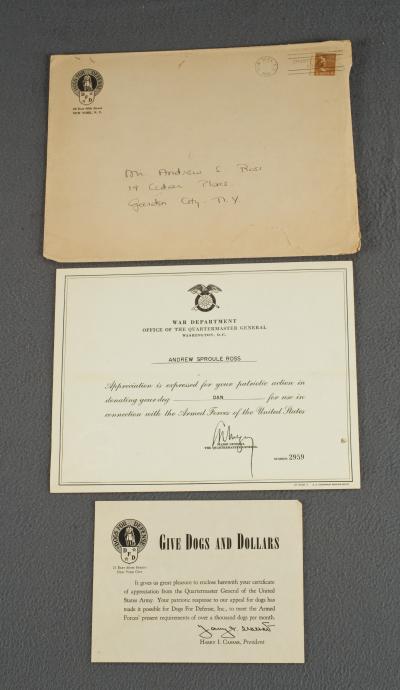 DOGS FOR DEFENSE
DFD
NEW YORK, N. Y.
Mr. Andrew S Ross
19 Cedar Place
Garden City. N.Y
WAR DEPARTMENT
OFFICE OF THE QUARTERMASTER GENERAL
WASHINGTON, D.C.
ANDREW SPROULE ROSS
Appreciation is expressed for your patriotic action in
donating your dog DAN for use in
connection with the Armed Forces of the United States
MAJOR GENERAL
THE QUARTERMASTER GENERAL
NUMBER 2959
DOGS FOR DEFENSE
DFD
GIVE DOGS AND DOLLARS
New York City
It gives us great pleasure to enclose herewith your certificate
of appreciation from the Quartermaster General of the United
States Army. Your patriotic response to our appeal for dogs has
made it possible for Dogs For Defense, Inc., to meet the Armed
Forces' present requirements of over a thousand dogs per month.
HARRY I. CAESAR, President